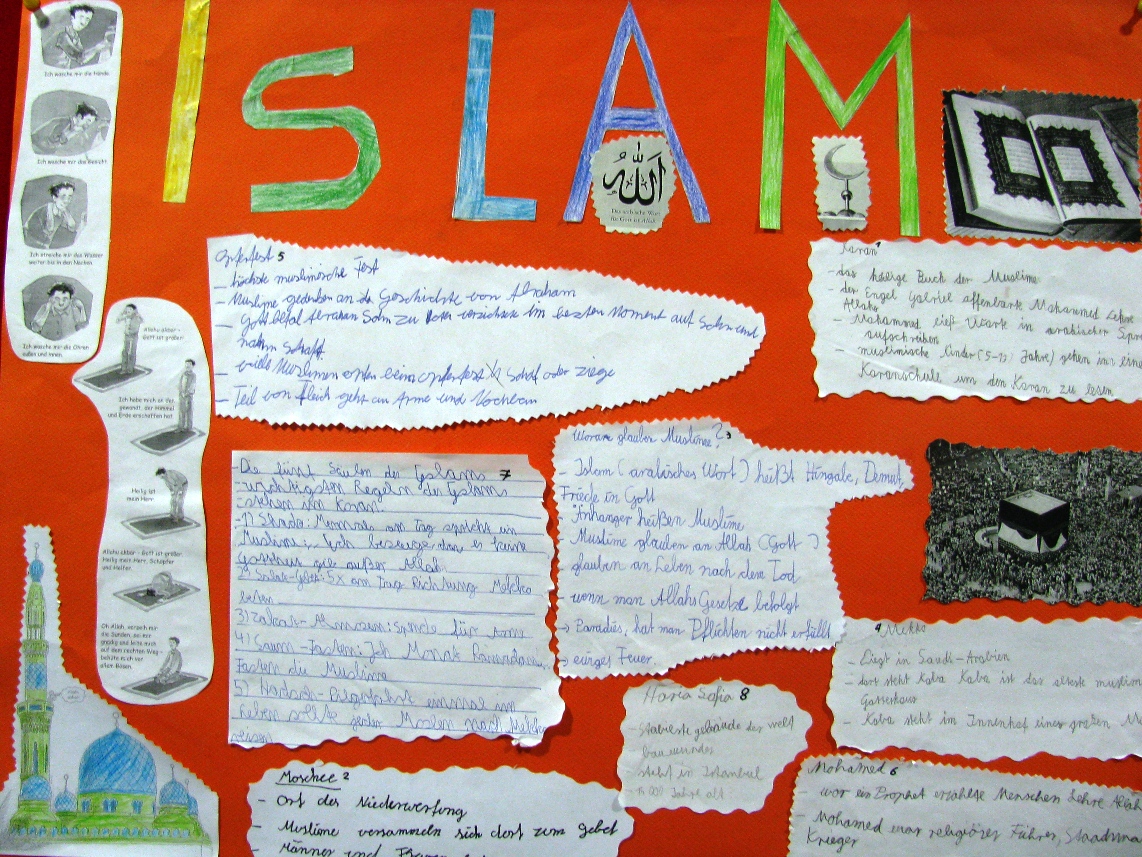 ISLAM
Ich wasche mir die Hände.
Ich wasche mir das Gesicht.
Ich streiche mir das Wasser
weiter bis in den Nacken.
Ich wasche mir die Ohren
außen und innen.
Allahu akbar –
Gott ist größer
Ich habe mich Dir zu-
gewandt, der Himmel
und Erde erschaffen hat
Heilig ist
mein Herr
Allahu akbar – Gott ist größer.
Heilig mein Herr, Schöpfer
und Helfer.
Oh Allah, verzeih mir
die Sünden, sei mir
gnädig und leite mich
auf dem rechten Weg –
behüte mich vor
allem Bösen.
الله
Das arabische Wort
für Gott ist Allah
Opferfest 5
– höchste muslimische Fest
– Muslime gedenken an die Geschichte von Abraham
– Gott befal Abraham Sohn zu verzichtete im besten Moment auf Sohn und
nahm Schaf
– viele Muslimen opfern beim opferfest Schaf oder ziege
– Teil von fleich geht an Arme und Nachbarn
Koran 1
– das heilige Buch der Muslime
– der Engel Gabriel offenbarte Mohammed Lehre
Allahs
– Mohammed ließ Work in arabischer Spra
aufschreiben
– muslimische Kinder (5-13 Jahre) gehen in eine
Koranschule um den Koran zu lesen
Die fünf Säulen des Islams 7
– wichtigsten Regeln des Islams
stehen im Koran:
–1) Shada: Mehrmals am Tag spricht ein
Muslime: „Ich bezeuge das es keine
Gottheit gie außer Allah
2) Salak-Gebet: 5x am Tag Richtung Mekka
beten
3) Zakat-Almosen: spende für arme
4) Saum-Fasten: Monat Ramadan
Fasten die Muslime
5) Hadsch-Pilgerfahrt einmal im
Leben sollte jeder Moslem nach Mekka
reisen
Woran glauben Muslime? 3
– Islam (arabisches Wort) heißt Hingabe, Demut,
Friede in Gott
Anhänger heißen Muslime
– Muslime glauben an Allah (Gott)
– glauben an Leben nach dem Tod
– wenn man Allahs Gesetze befolgt
→ Paradies, hat man Pflichten nicht erfüllt
→ ewiges Feuer.
4 Mekka
– Liegt in Saudi-Arabien
– dort steht Kaba Kaba ist das älteste muslim
Gotteshaus
– Kaba steht im Innenhof einer großen M
Hagia Sofia 8
– Stabilste gebäude der welt
– steht in Istambul
Jahre alt
Moschee 2
– Ort der Niederwerfung
– Muslime versammeln sich dort zum gebet
– Männer und Frauen
Mohamed 6
– war ein Prophet erzählte Menschen Lehre Allahs
– Mohamed war religiöser Führer, Staatsma
Krieger